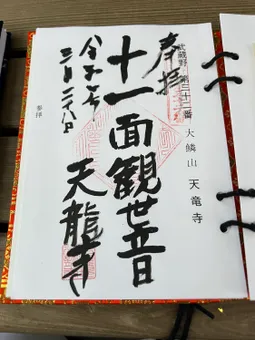 武蔵野 第三十二番
大鱗山 天竜寺
奉拝
十一面観世音
天龍寺
令和七年
三月二十八日
奉拝